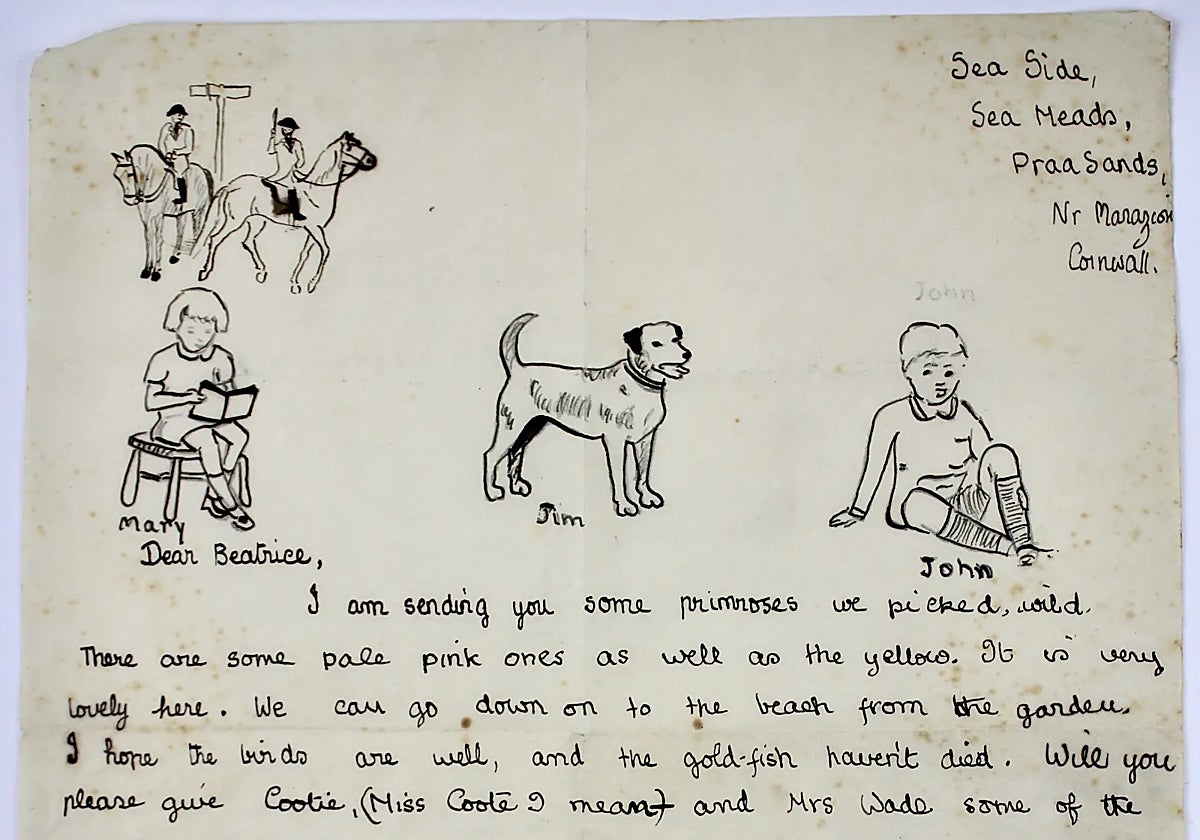 Sea Side,
Sea Meads,
Praa Sands,
Nr Marazion
Cornwall.
John
Mary
Jim
John
Dear Beatrice,
I am sending you some primroses we picked, wild.
There are some pale pink ones as well as the yellow. It is very
lovely here. We can go down on to the beach from the garden.
I hope the birds are well, and the gold-fish haven't died. Will you
please give Cootie, (Miss Coote I mean) and Mrs Wade some of the